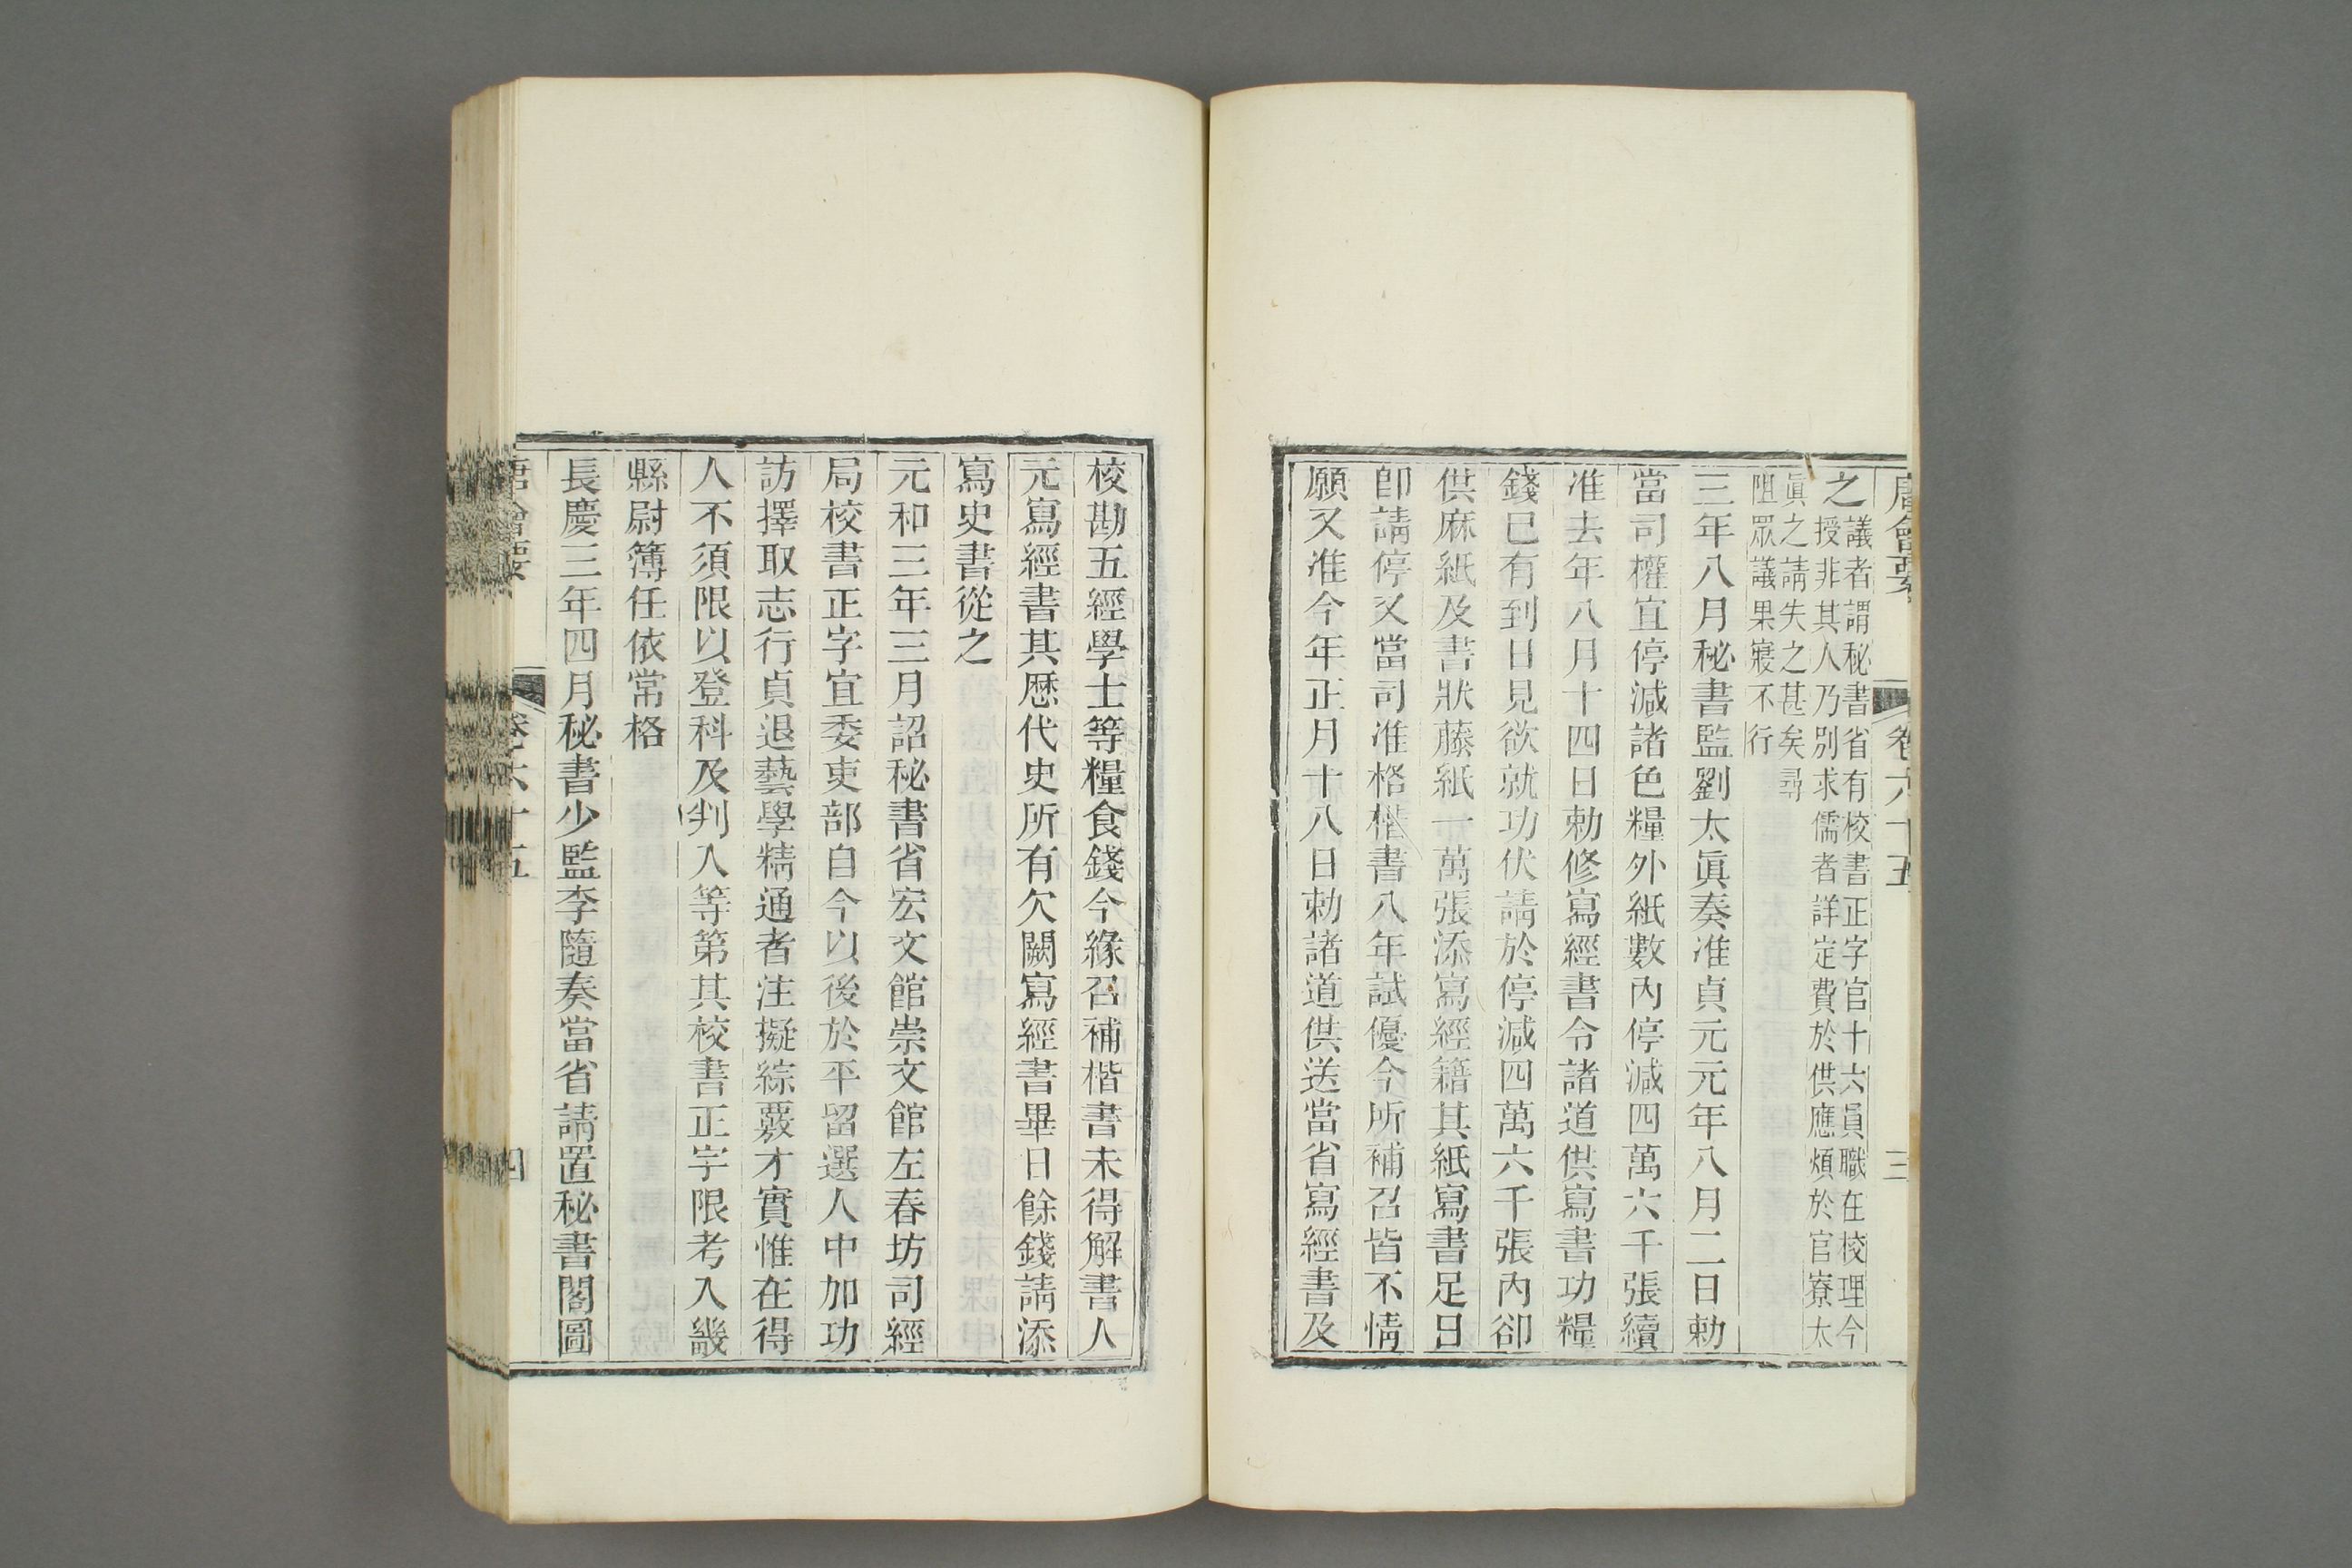 唐會要 卷六十五 三
之議者謂秘書省有校書正字官十六員職在校理今
授非其人乃別求儒者詳定費於供應煩於官寮太
眞之請失之甚矣尋
阻眾議果寢不行
三年八月秘書監劉太眞奏准貞元元年八月二日勅
當司權宜停減諸色糧外紙數內停減四萬六千張續
准去年八月十四日勅修寫經書令諸道供寫書功糧
錢已有到日見欲就功伏請於停減四萬六千張內卻
供麻紙及書狀藤紙一萬張添寫經籍其紙寫書足日
卽請停又當司准格楷書八年試優今所補召皆不情
願又准今年正月十八日勅諸道供送當省寫經書及
校勘五經學士等糧食錢今緣召補楷書未得解書人
元寫經書其厯代史所有欠闕寫經書畢日餘錢請添
寫史書從之
元和三年三月詔秘書省宏文館崇文館左春坊司經
局校書正字宜委吏部自今以後於平留選人中加功
訪擇取志行貞退藝學精通者注擬綜覈才實惟在得
人不須限以登科及判入等第其校書正字限考入畿
縣尉簿任依常格
長慶三年四月秘書少監李隨奏當省請置秘書閣圖
唐會要 卷六十五 四